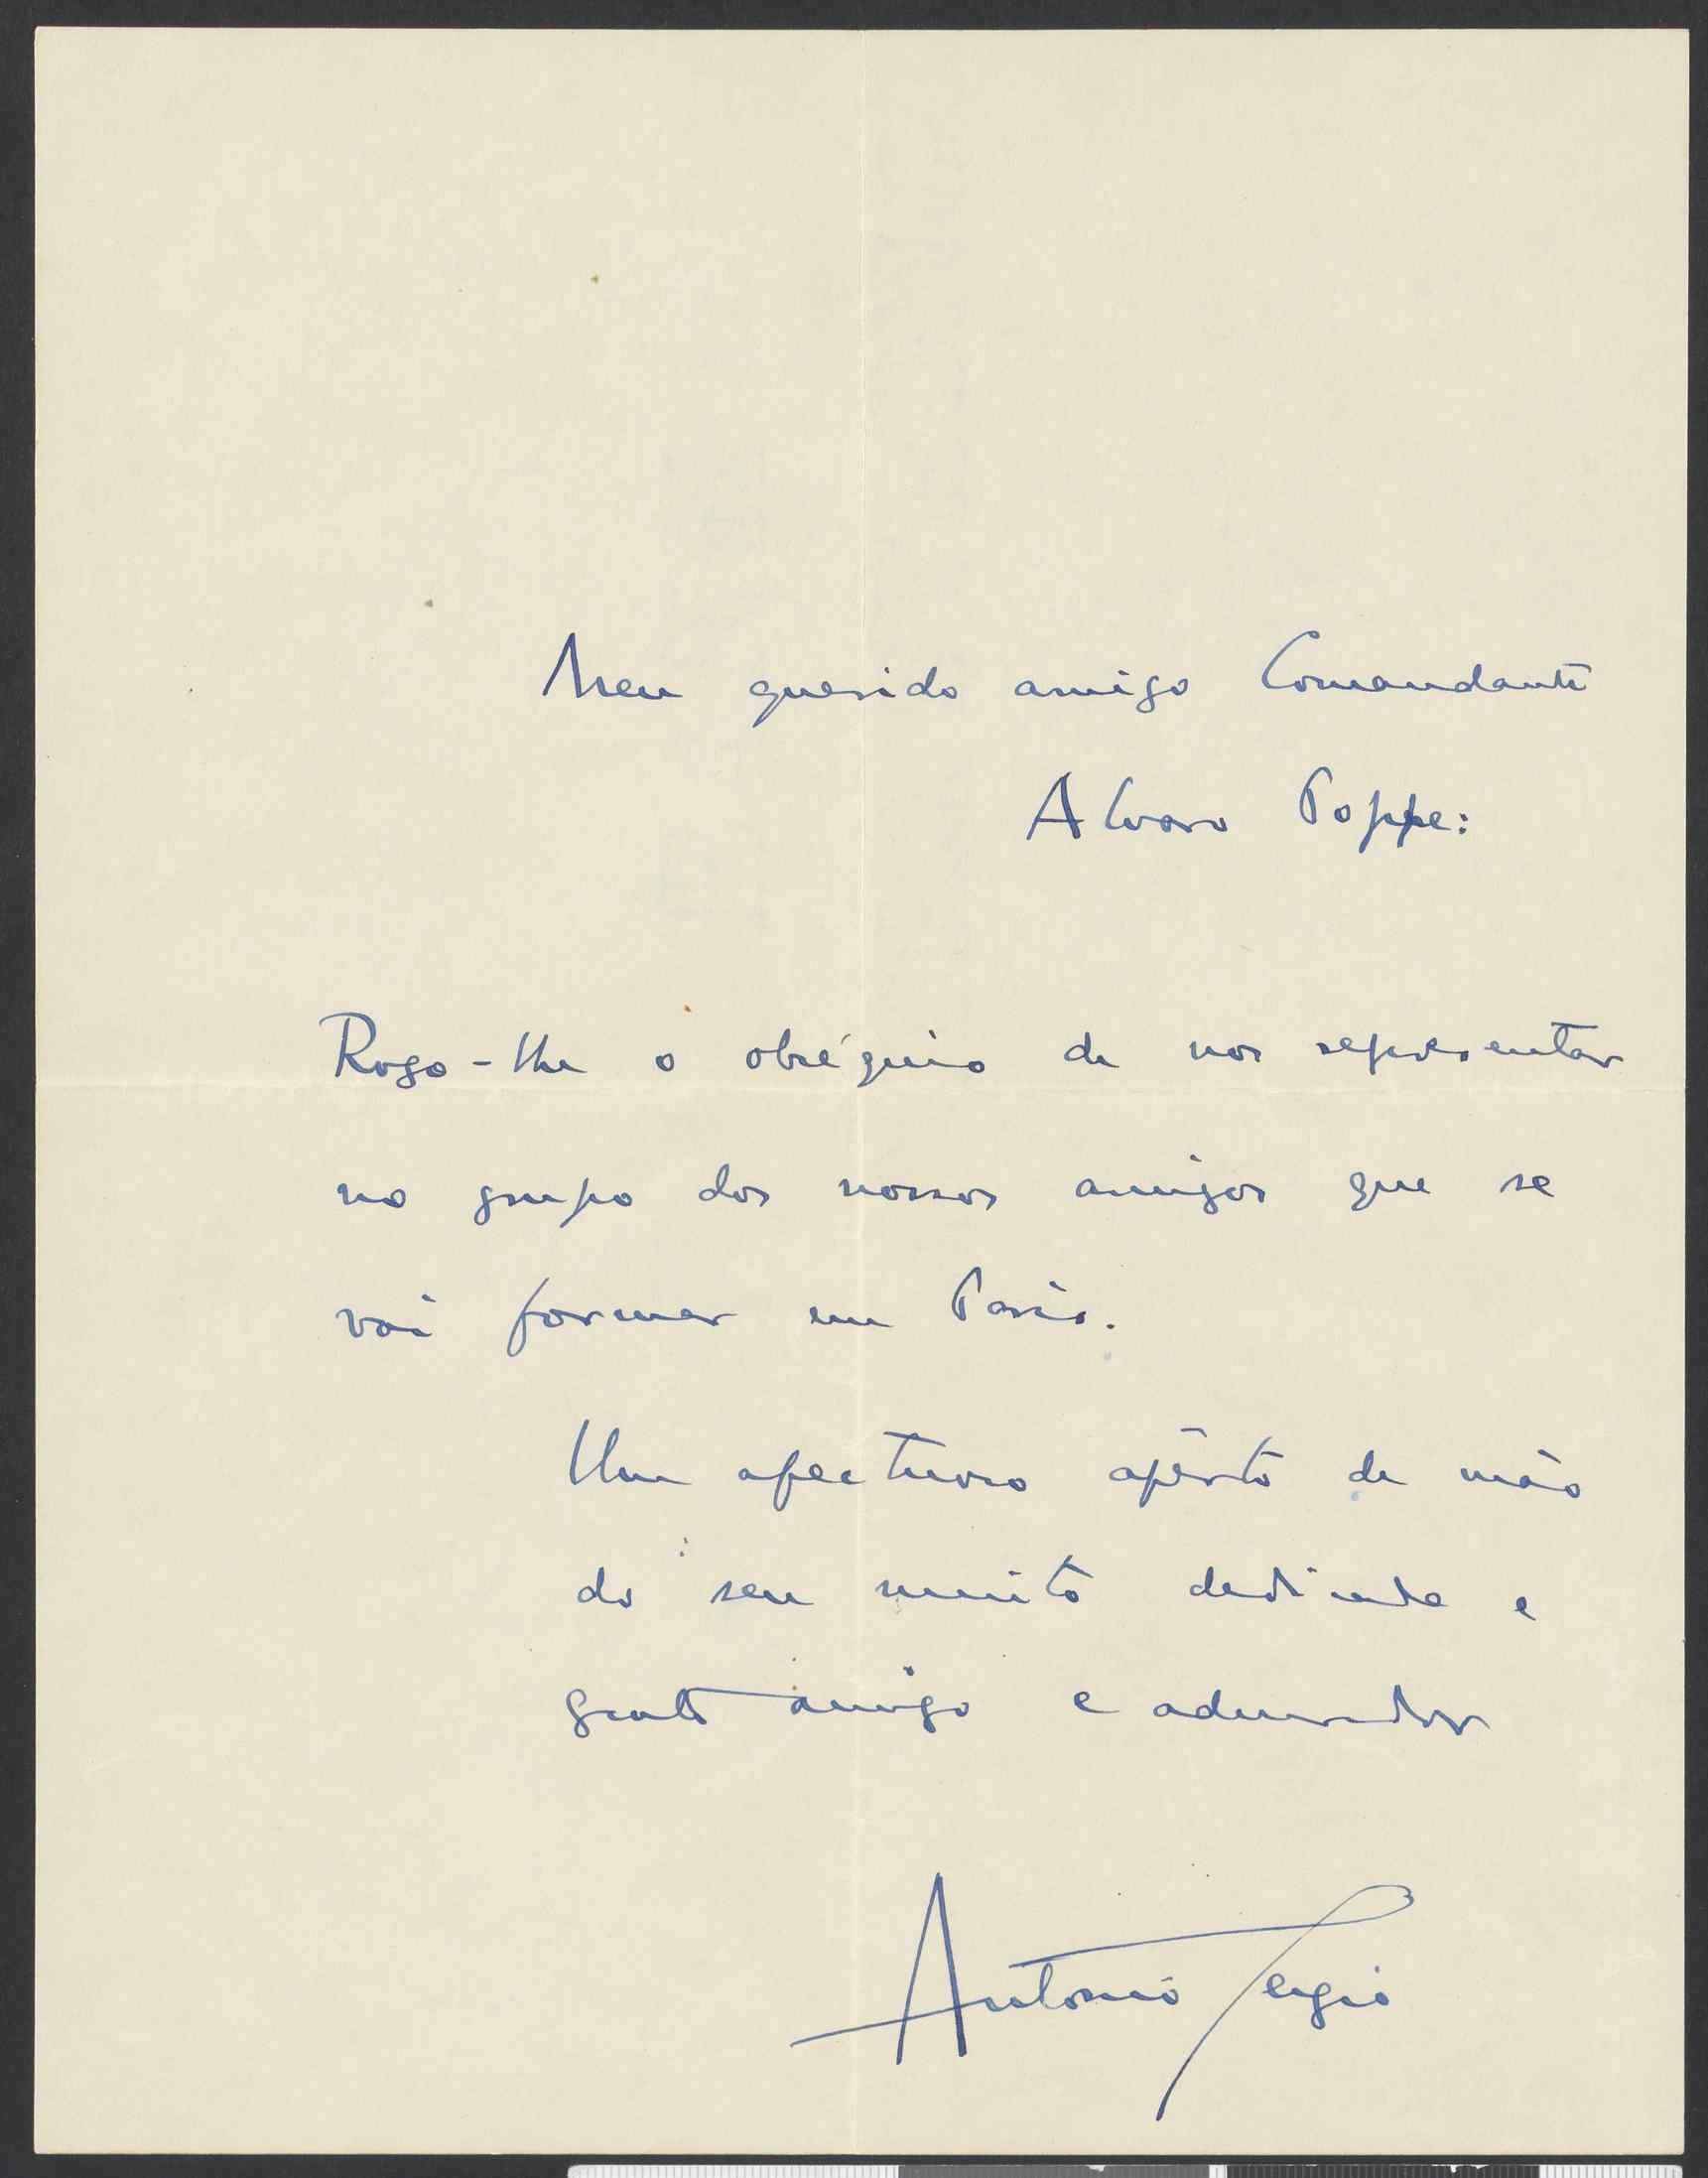 Meu querido amigo Comandante
Alvaro Poppe:
Rogo-lhe o obséquio de nos representar
no grupo dos nossos amigos que se
vai formar em Paris.
Um afectuoso apêrto de mão
do seu muito dedicado e
grato amigo e admirador
Antonio Sergio